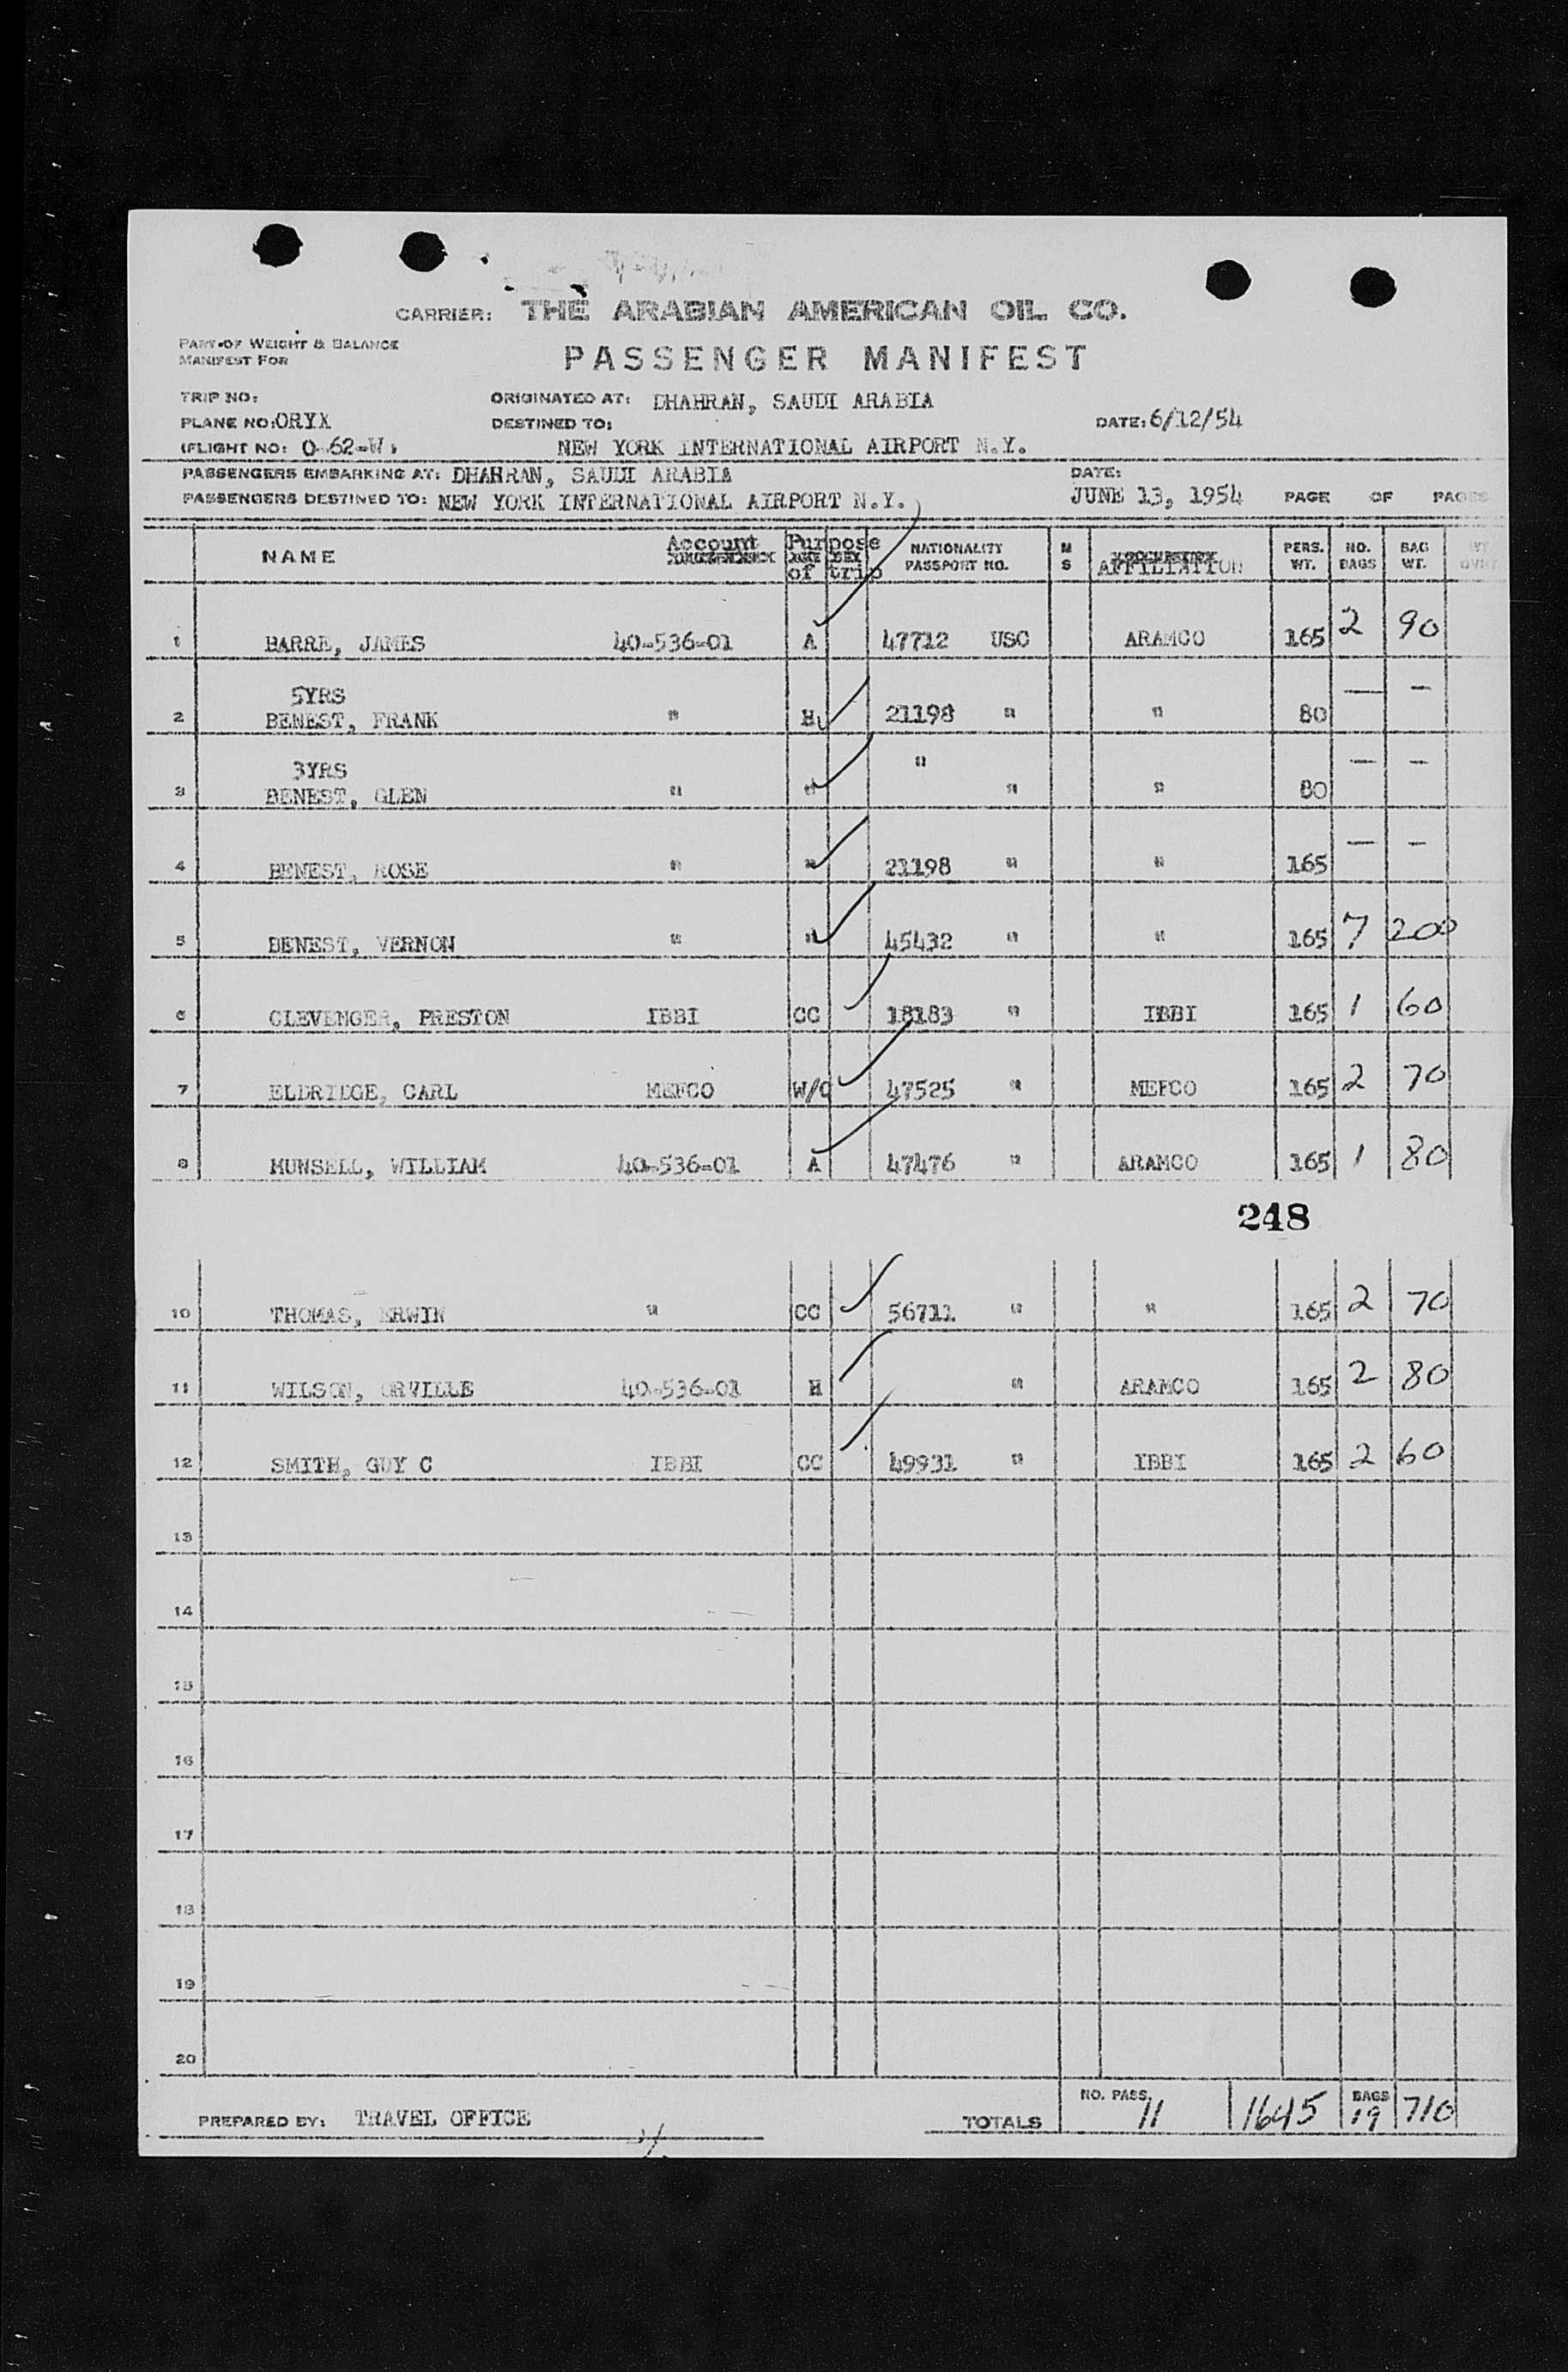 CARRIER: THE ARABIAN AMERICAN OIL CO.
PART OF WEIGHT & BALANCE
MANIFEST FOR
PASSENGER MANIFEST
TRIP NO:
ORIGINATED AT: DHAHRAN, SAUDI ARABIA
PLANE NO: ORYX
DESTINED TO:
DATE: 6/12/54
(FLIGHT NO: O-62-W)
NEW YORK INTERNATIONAL AIRPORT N.Y.
PASSENGERS EMBARKING AT: DHAHRAN, SAUDI ARABIA
DATE:
PASSENGERS DESTINED TO: NEW YORK INTERNATIONAL AIRPORT N.Y.
JUNE 13, 1954 PAGE OF PAGES
NAME Account Purpose of trip NATIONALITY PASSPORT NO. M S AFFILIATION PERS. WT. NO. BAGS BAG WT.
1 BARRE, JAMES 40-536-01 A 47712 USC ARAMCO 165 2 90
5YRS
2 BENEST, FRANK " H 21198 " " 80 — —
3YRS
3 BENEST, GLEN " " " " " 80 — —
4 BENEST, ROSE " " 21198 " " 165 — —
5 BENEST, VERNON " " 45432 " " 165 7 200
6 CLEVENGER, PRESTON IBBI CC 18183 " IBBI 165 1 60
7 ELDRIDGE, CARL MEFCO W/C 47525 " MEFCO 165 2 70
8 MUNSELL, WILLIAM 40-536-01 A 47476 " ARAMCO 165 1 80
248
10 THOMAS, ERWIN " CC 56711 " " 165 2 70
11 WILSON, ORVILLE 40-536-01 H " ARAMCO 165 2 80
12 SMITH, GUY C IBBI CC 49931 " IBBI 165 2 60
13
14
15
16
17
18
19
20
PREPARED BY: TRAVEL OFFICE TOTALS NO. PASS. 11 1645 BAGS 19 710